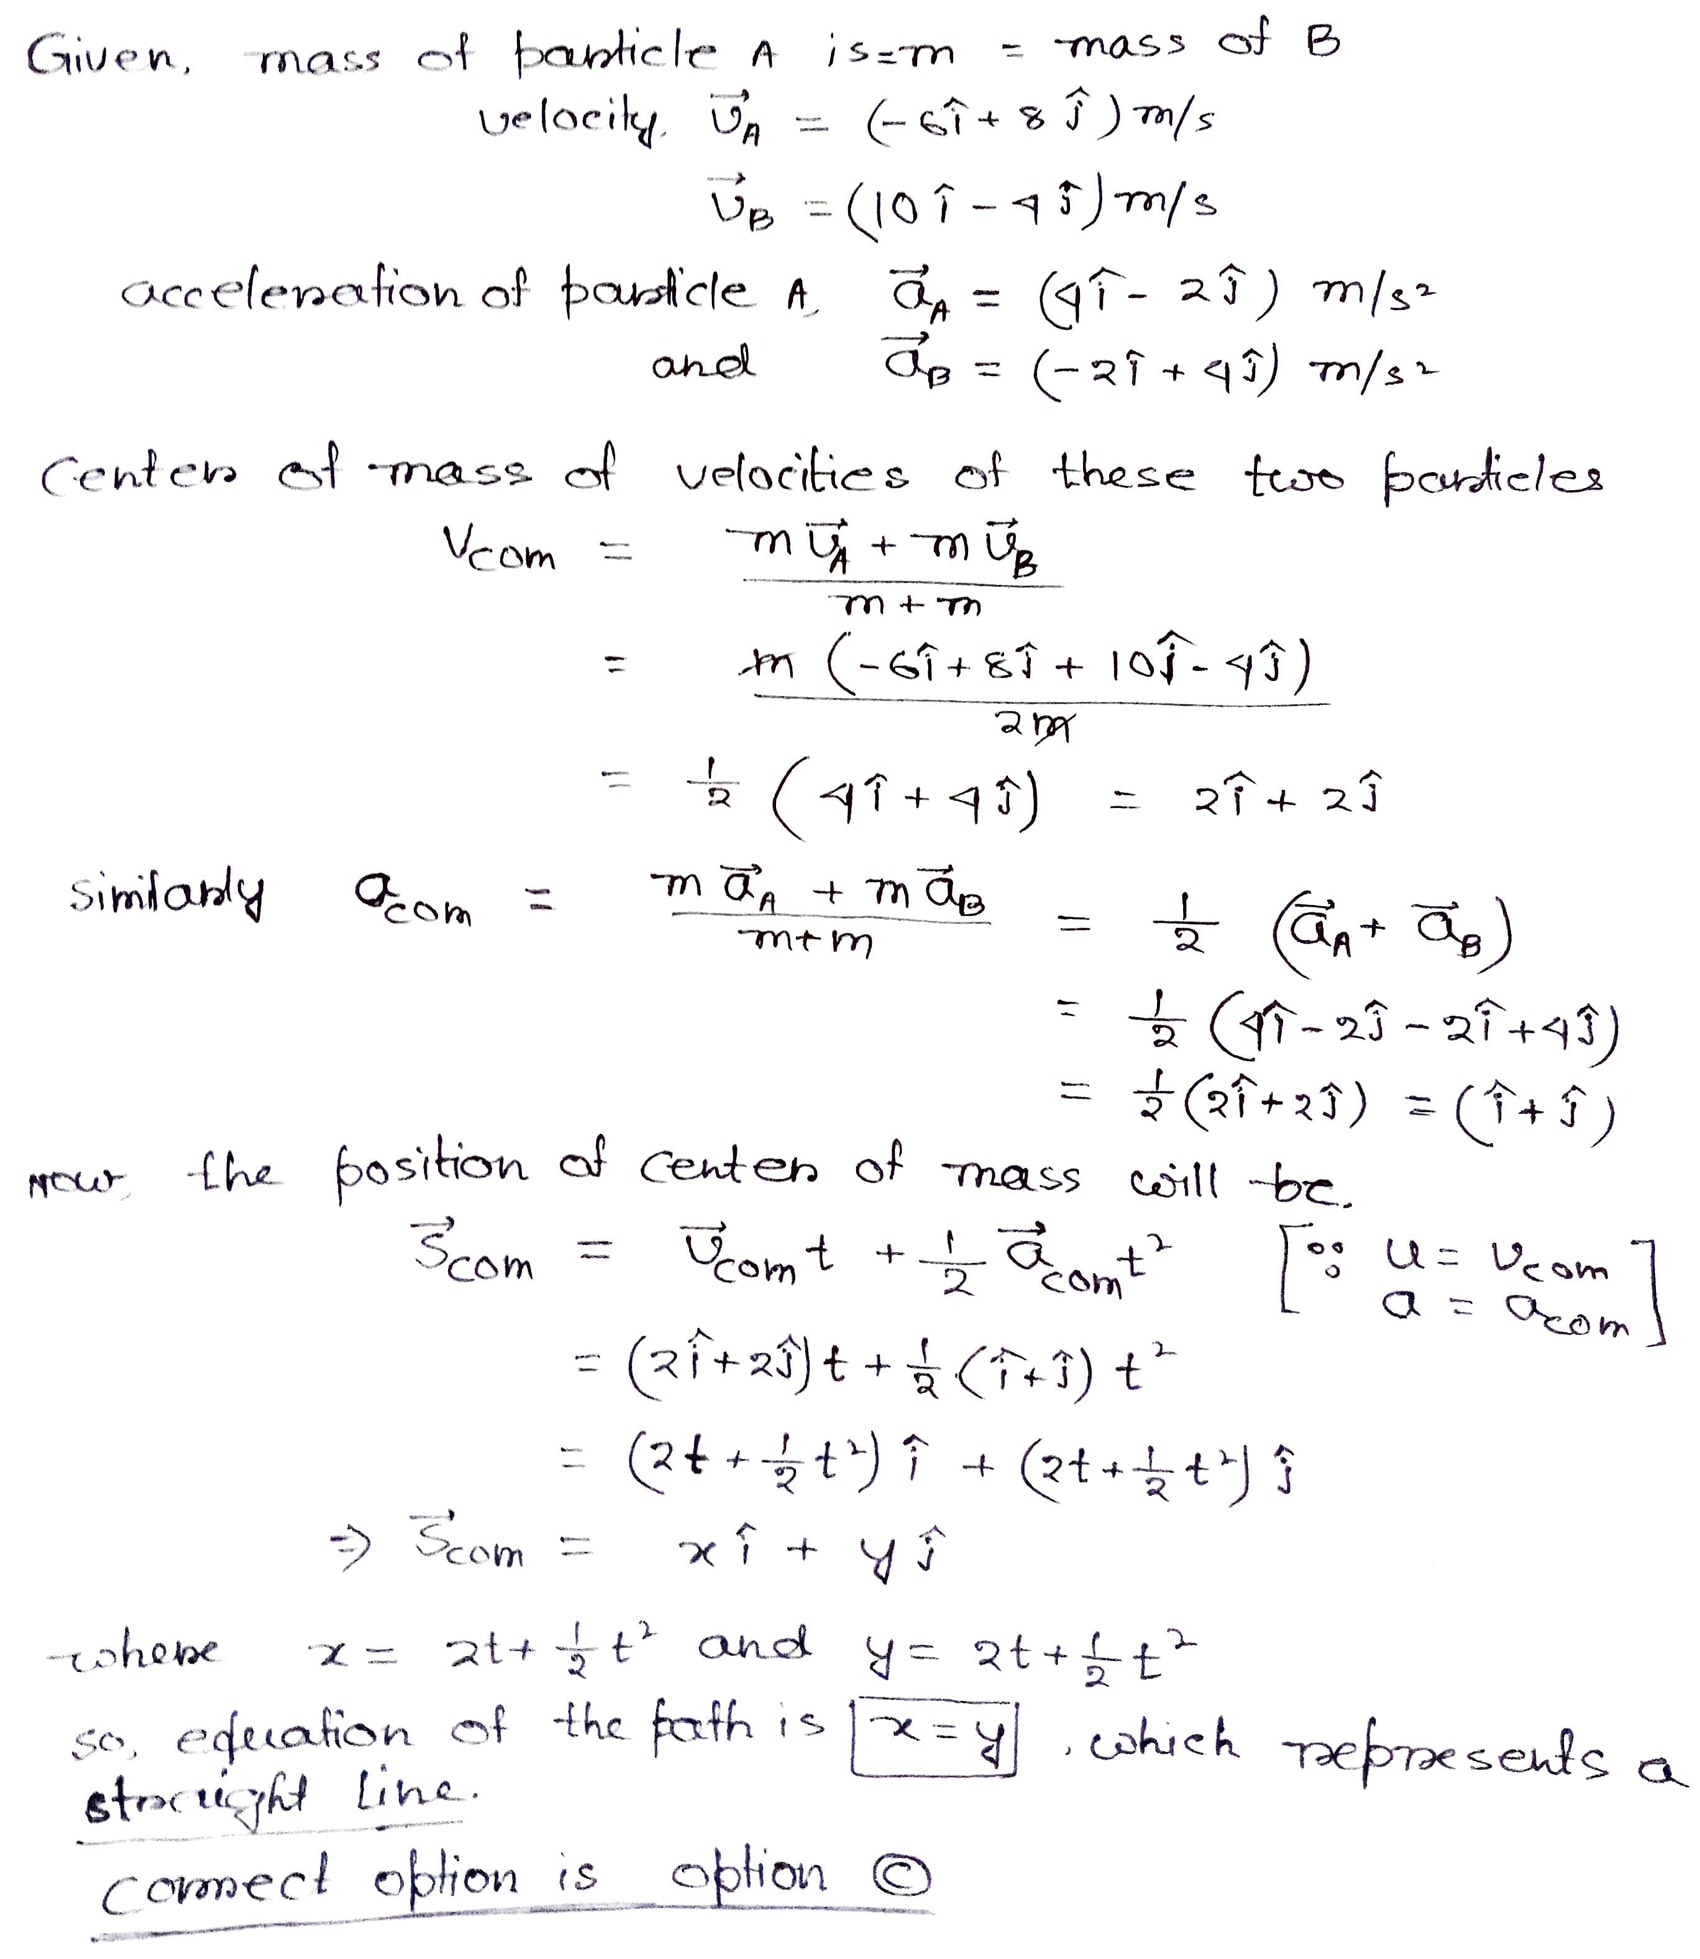 Given, mass of particle A is = m = mass of B
velocity, v⃗_A = (-6î + 8ĵ) m/s
v⃗_B = (10î - 4ĵ) m/s
acceleration of particle A, a⃗_A = (4î - 2ĵ) m/s²
and a⃗_B = (-2î + 4ĵ) m/s²
Center of mass of velocities of these two particles
V_com = (m v⃗_A + m v⃗_B) / (m + m)
= m (-6î + 8ĵ + 10ĵ - 4ĵ) / 2m
= 1/2 (4î + 4ĵ) = 2î + 2ĵ
similarly a_com = (m a⃗_A + m a⃗_B) / (m + m) = 1/2 (a⃗_A + a⃗_B)
= 1/2 (4î - 2ĵ - 2î + 4ĵ)
= 1/2 (2î + 2ĵ) = (î + ĵ)
Now, the position of center of mass will be.
S⃗_com = v⃗_com t + 1/2 a⃗_com t² [∵ u = v_com
a = a_com]
= (2î + 2ĵ) t + 1/2 (î + ĵ) t²
= (2t + 1/2 t²) î + (2t + 1/2 t²) ĵ
⇒ S⃗_com = x î + y ĵ
where x = 2t + 1/2 t² and y = 2t + 1/2 t²
so, equation of the path is x = y, which represents a
straight line.
correct option is option ©